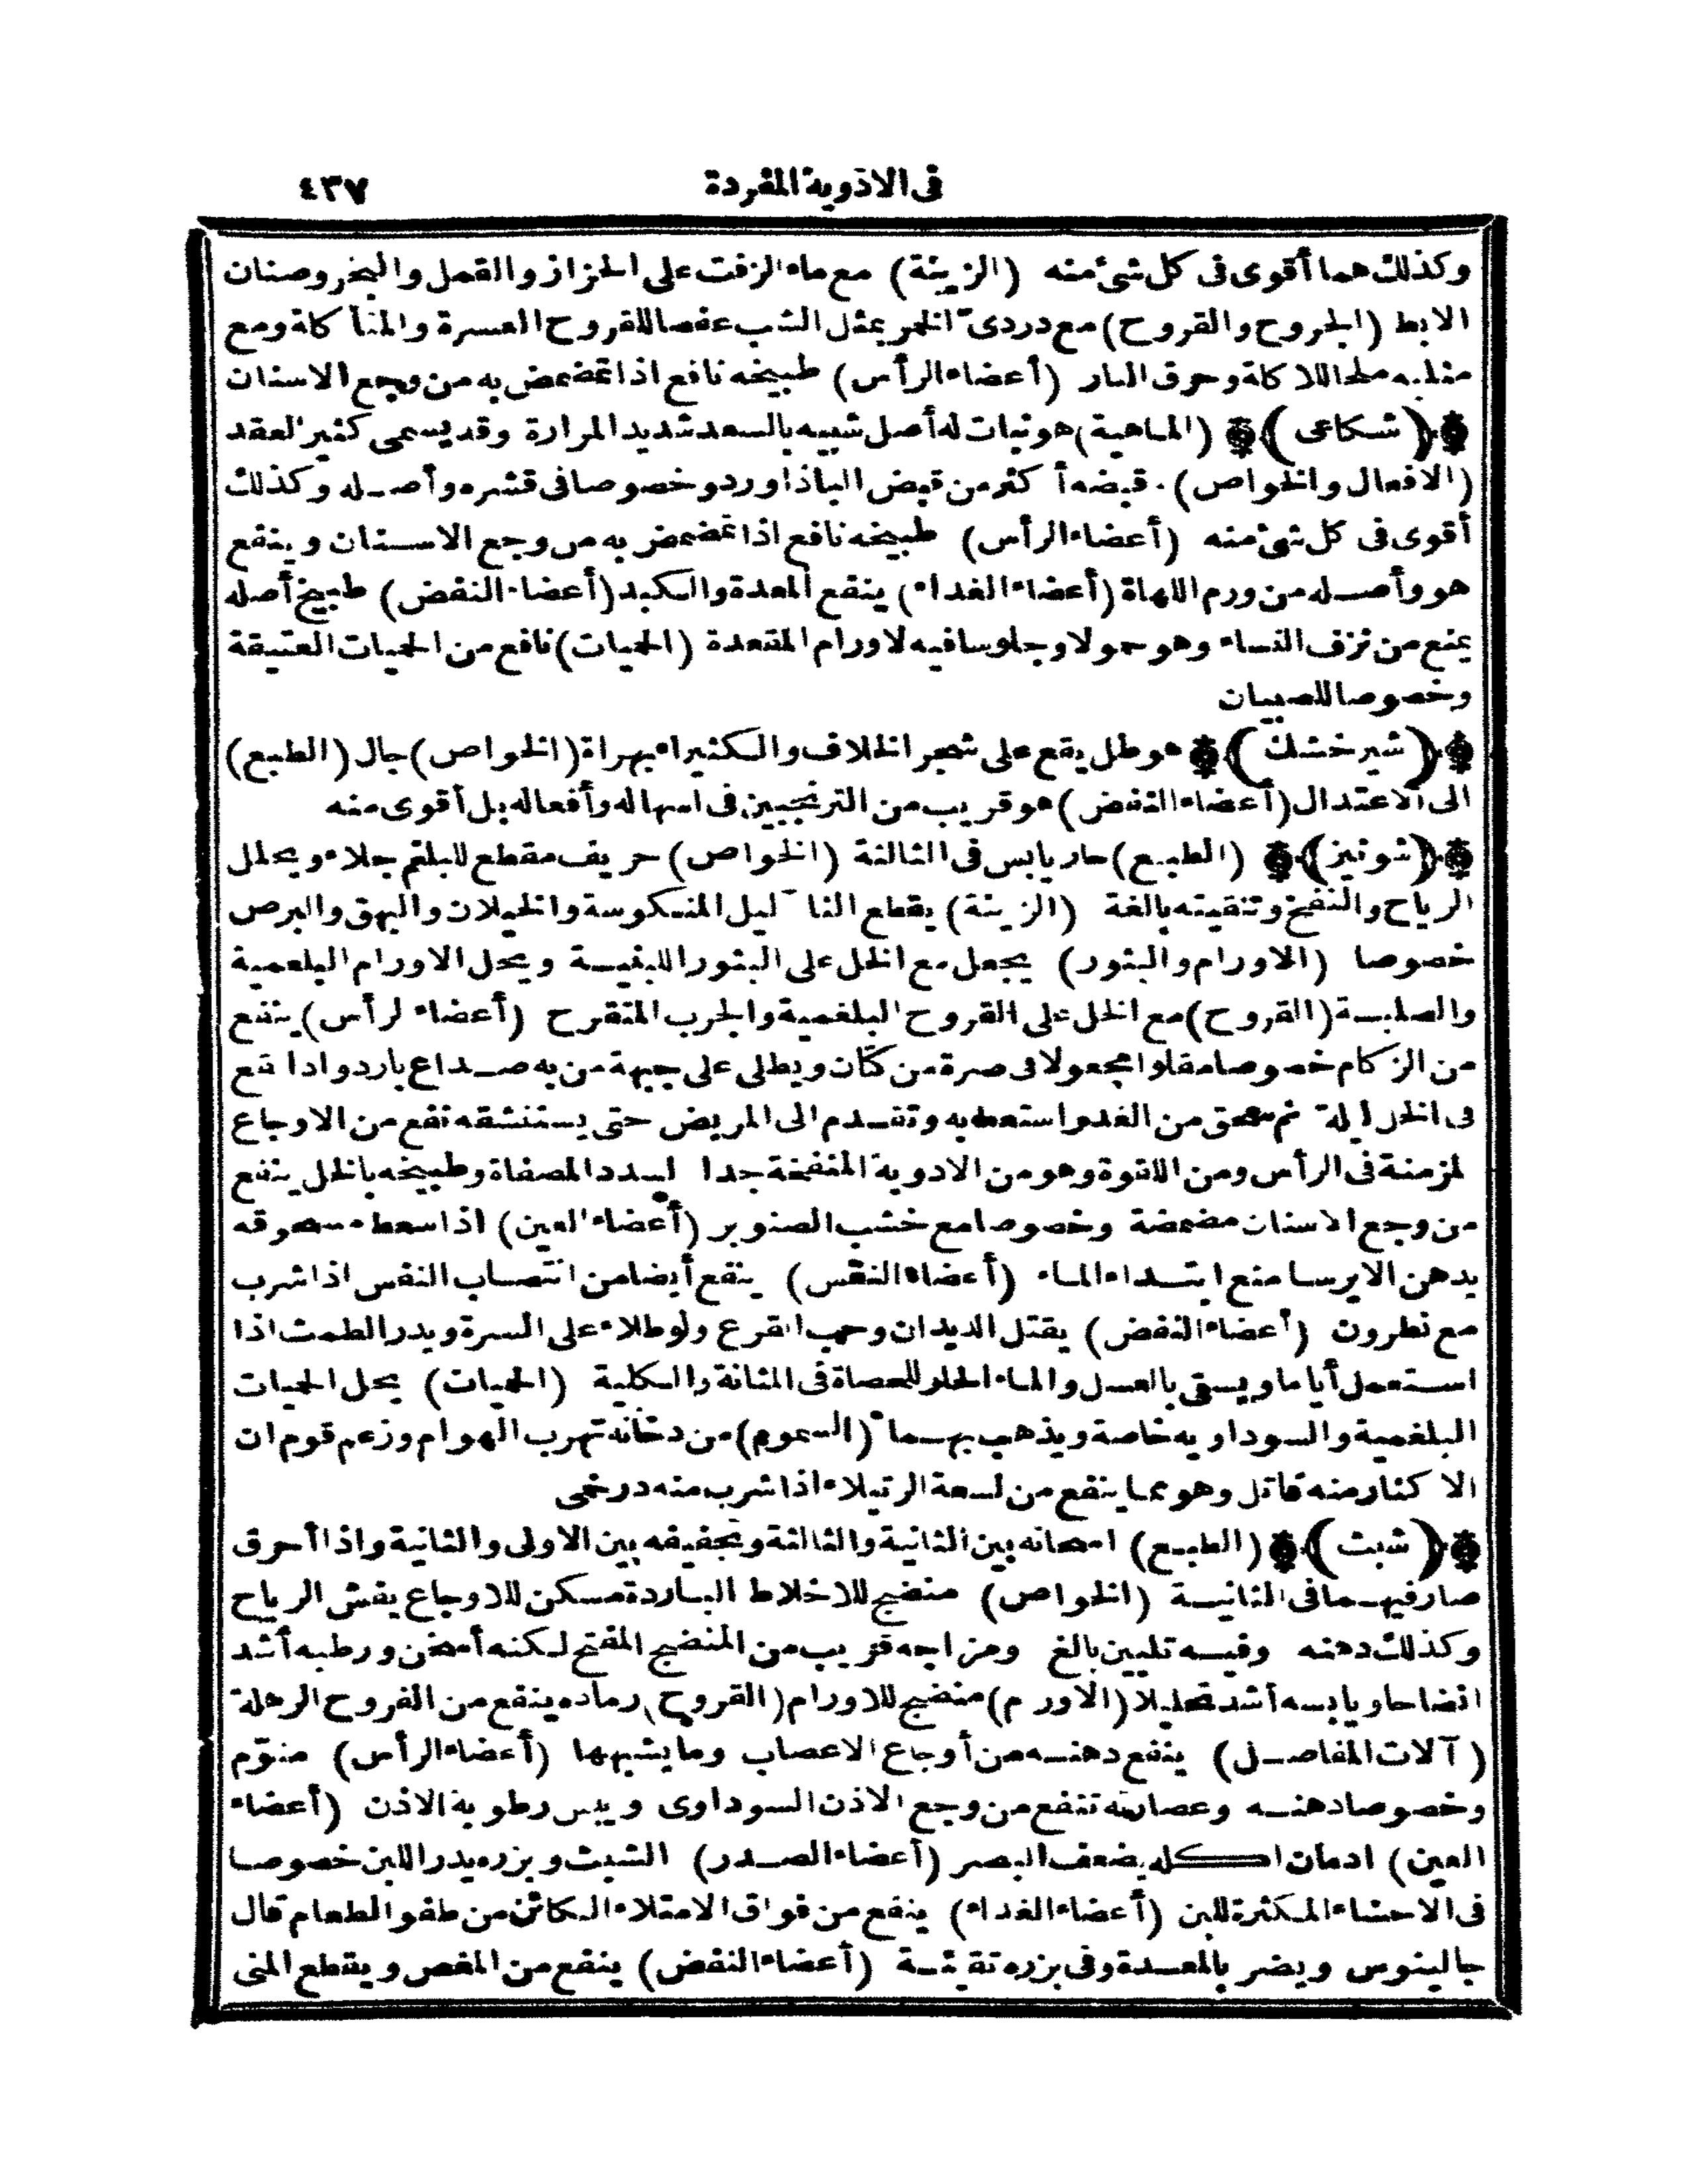 فى الادوية المفردة ٤٣٧
وكذلك هما أقوى فى كل شئ منه (الزينة) مع ماء الزفت على الحزاز والقمل والبخر وصنان
الابط (الجروح والقروح) مع دردى الخمر بمثل الشب عفصا للقروح العسرة والمتأ كلة ومع
مثليه ملحا للا كلة وحرق النار (أعضاء الرأس) طبيخه نافع اذا تمضمض به من وجع الاسنان
(شكاعى) (الماهية) هو نبات له أصل شبيه بالسعد شديد المرارة وقد يسمى كثير العقد
(الافعال والخواص) قبضه أ كثر من قبض الباذاورد وخصوصا فى قشره وأصله وكذلك
أقوى فى كل شئ منه (أعضاء الرأس) طبيخه نافع اذا تمضمض به من وجع الاسنان وينفع
هو وأصله من ورم اللهاة (أعضاء الغداء) ينفع المعدة والكبد (أعضاء النفض) طبيخ أصله
يمنع من نزف النساء وهو حمولا وجلوسا فيه لاورام المقعدة (الحميات) نافع من الحميات العتيقة
وخصوصا للصبيان
(شيرخشك) هو طل يقع على شجر الخلاف والكثيراء بهراة (الخواص) جال (الطبع)
الى الاعتدال (أعضاء النفض) هو قريب من الترنجبين فى اسهاله وأفعاله بل أقوى منه
(شونيز) (الطبع) حار يابس فى الثالثة (الخواص) حريف مقطع للبلغم جلاء ويحلل
الرياح والنفخ وتنقيته بالغة (الزينة) يقطع الثا ليل المنكوسة والخيلان والبهق والبرص
خصوصا (الاورام والبثور) يجعل مع الخل على البثور اللبنية ويحل الاورام البلغمية
والصلبة (القروح) مع الخل على القروح البلغمية والجرب المتقرح (أعضاء لرأس) ينفع
من الزكام خصوصا مقلوا مجعولا فى صرة من كتان ويطلى على جبهة من به صداع بارد واذا نقع
فى الخل ليلة ثم سحق من الغد واستعط به وتقدم الى المريض حتى يستنشقه نفع من الاوجاع
لمزمنة فى الرأس ومن اللقوة وهو من الادوية المنفخة جدا لسدد المصفاة وطبيخه بالخل ينفع
من وجع الاسنان مضمضة وخصوصا مع خشب الصنوبر (أعضاء العين) اذا سعط مسحوقه
بدهن الايرسا منع ابتداء الماء (أعضاء النفس) ينفع أيضا من انتصاب النفس اذا شرب
مع نطرون (أعضاء النفض) يقتل الديدان وحب القرع ولو طلاء على السرة ويدر الطمث اذا
استعمل أياما ويسقى بالعسل والماء الحار للحصاة فى المثانة والكلية (الحميات) يحل الحميات
البلغمية والسوداويه خاصة ويذهب بهما (السموم) من دخانه تهرب الهوام وزعم قوم ان
الا كثار منه قاتل وهو مما ينفع من لسعة الرتيلاء اذا شرب منه درخمى
(شبت) (الطبع) اسخانه بين الثانية والثالثة وتجفيفه بين الاولى والثانية واذا أحرق
صار فيهما فى الثانية (الخواص) منضج للاخلاط الباردة مسكن للاوجاع يفش الرياح
وكذلك دهنه وفيه تليين بالغ ومزاجه قريب من المنضج المفتح لكنه أسخن ورطبه أشد
انضاحا ويابسه أشد تحليلا (الاورم) منضج للاورام (القروح) رماده ينفع من القروح الرهلة
(آلات المفاصل) ينفع دهنه من أوجاع الاعصاب وما يشبهها (أعضاء الرأس) منوّم
وخصوصا دهنه وعصارته تنفع من وجع الاذن السوداوى ويبس رطوبة الاذن (أعضاء
العين) ادمان اكله يضعف البصر (أعضاء الصدر) الشبث وبزره يدر اللبن خصوصا
فى الاحشاء المكثرة للبن (أعضاء الغداء) ينفع من فواق الامتلاء الكائن من طفو الطعام قال
جالينوس ويضر بالمعدة وفى بزره تقيئة (أعضاء النفض) ينفع من المغص ويقطع المنى